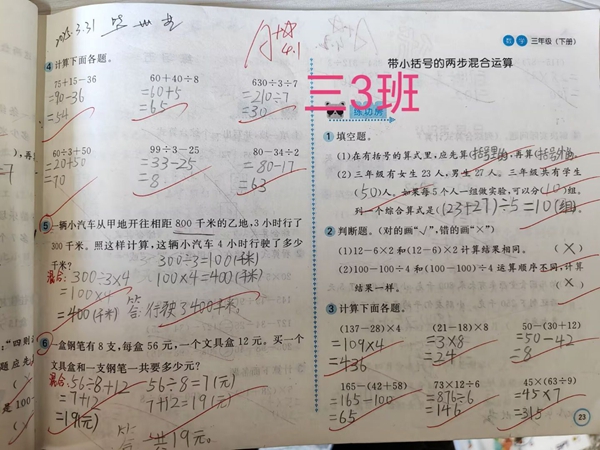 2025.3.31
4.1
4 计算下面各题。
75+15-36
=90-36
=54
60+40÷8
=60+5
=65
630÷3÷7
=210÷7
=30
60÷3+50
=20+50
=70
99÷3-25
=33-25
=8
80-34÷2
=80-17
=63
5 一辆小汽车从甲地开往相距800千米的乙地,3小时行了
300千米。照这样计算,这辆小汽车4小时行驶了多少
千米?
300÷3=100(千米)
综合:300÷3×4
100×4=400(千米)
=100×4
=400(千米)
答:行驶了400千米。
6 一盒钢笔有8支,每盒56元,一个文具盒12元,买一个
文具盒和一支钢笔一共要多少元?
综合:56÷8+12
56÷8=7(元)
=7+12
7+12=19(元)
=19(元)
共19元。
数学 三年级(下册)
带小括号的两步混合运算
三3班
练功房
1 填空题。
(1)在有括号的算式里,应先算(括号里的),再算(括号外的)。
(2)三年级有女生23人,男生27人。三年级共有学生
(50)人。如果每5个人一组做实验,可以分(10)组。
列一个综合算式是((23+27)÷5=10(组))。
2 判断题。(对的画“√”,错的画“×”)
(1)12-6×2和(12-6)×2计算结果相同。 (×)
(2)100-100÷4和(100-100)÷4运算顺序不同,计算
结果一样。 (×)
3 计算下面各题。
(137-28)×4
=109×4
=436
(21-18)×8
=3×8
=24
50-(30+12)
=50-42
=8
165-(42+58)
=165-100
=65
73×12÷6
=876÷6
=146
45×(63÷9)
=45×7
=315
23